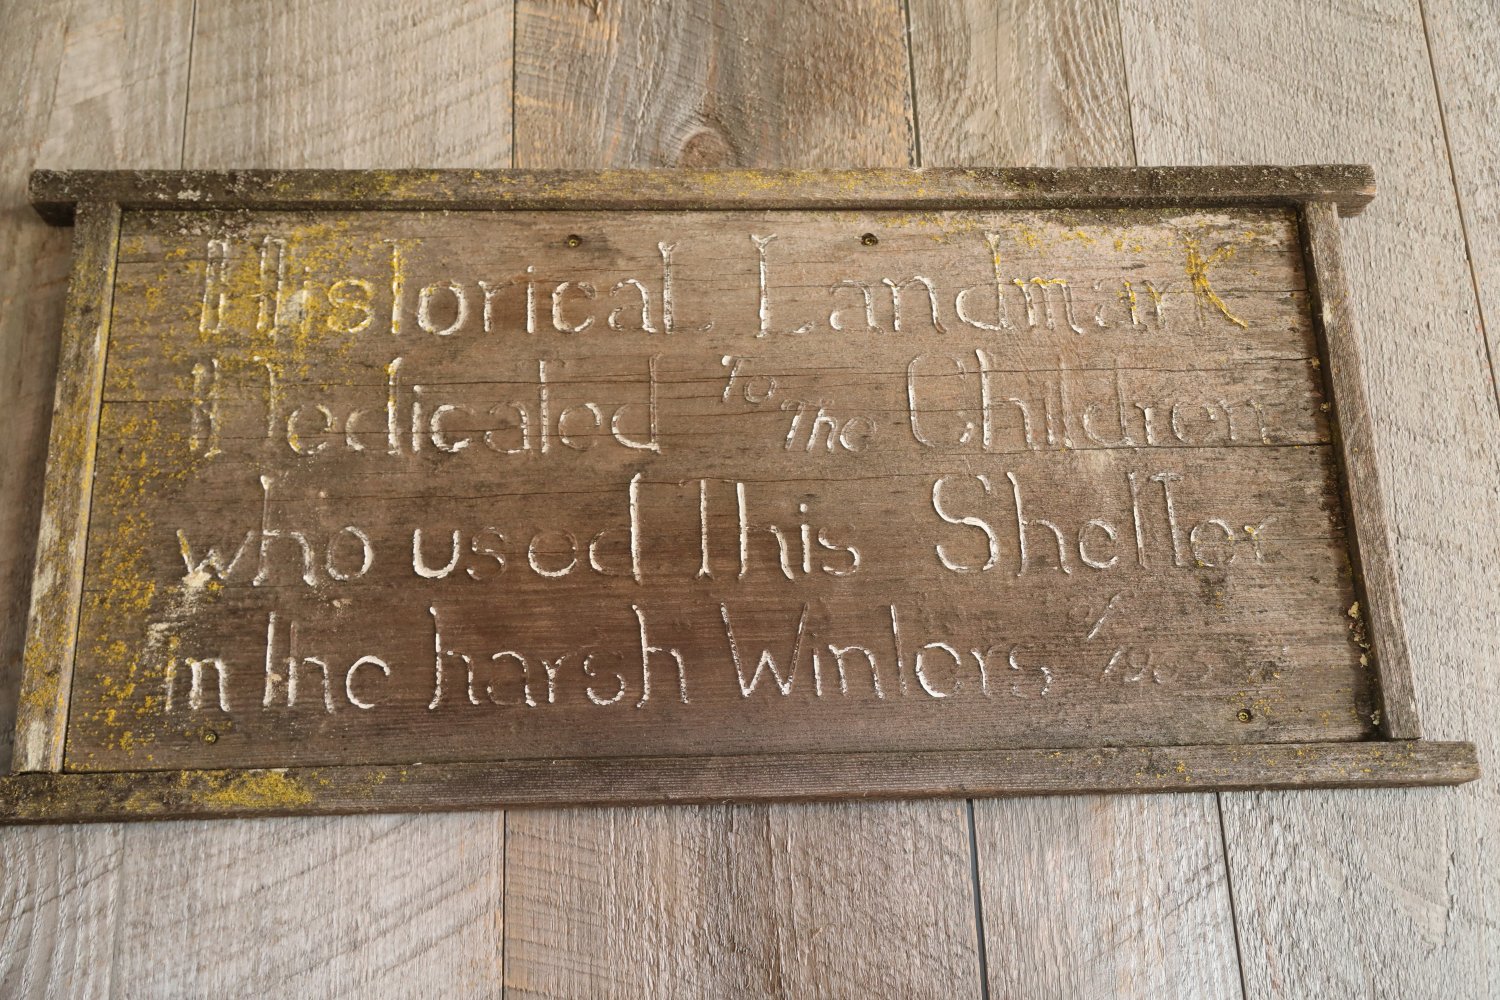 Historical Landmark
Dedicated To The Children
who used This Shelter
in the harsh Winters